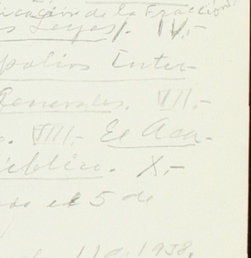 icación de la Fracción
s Leyes. IV.-
polios Inter-
Generales. VII.-
. VIII.- El Aca-
ública. X.-
do el 5 de
1938,